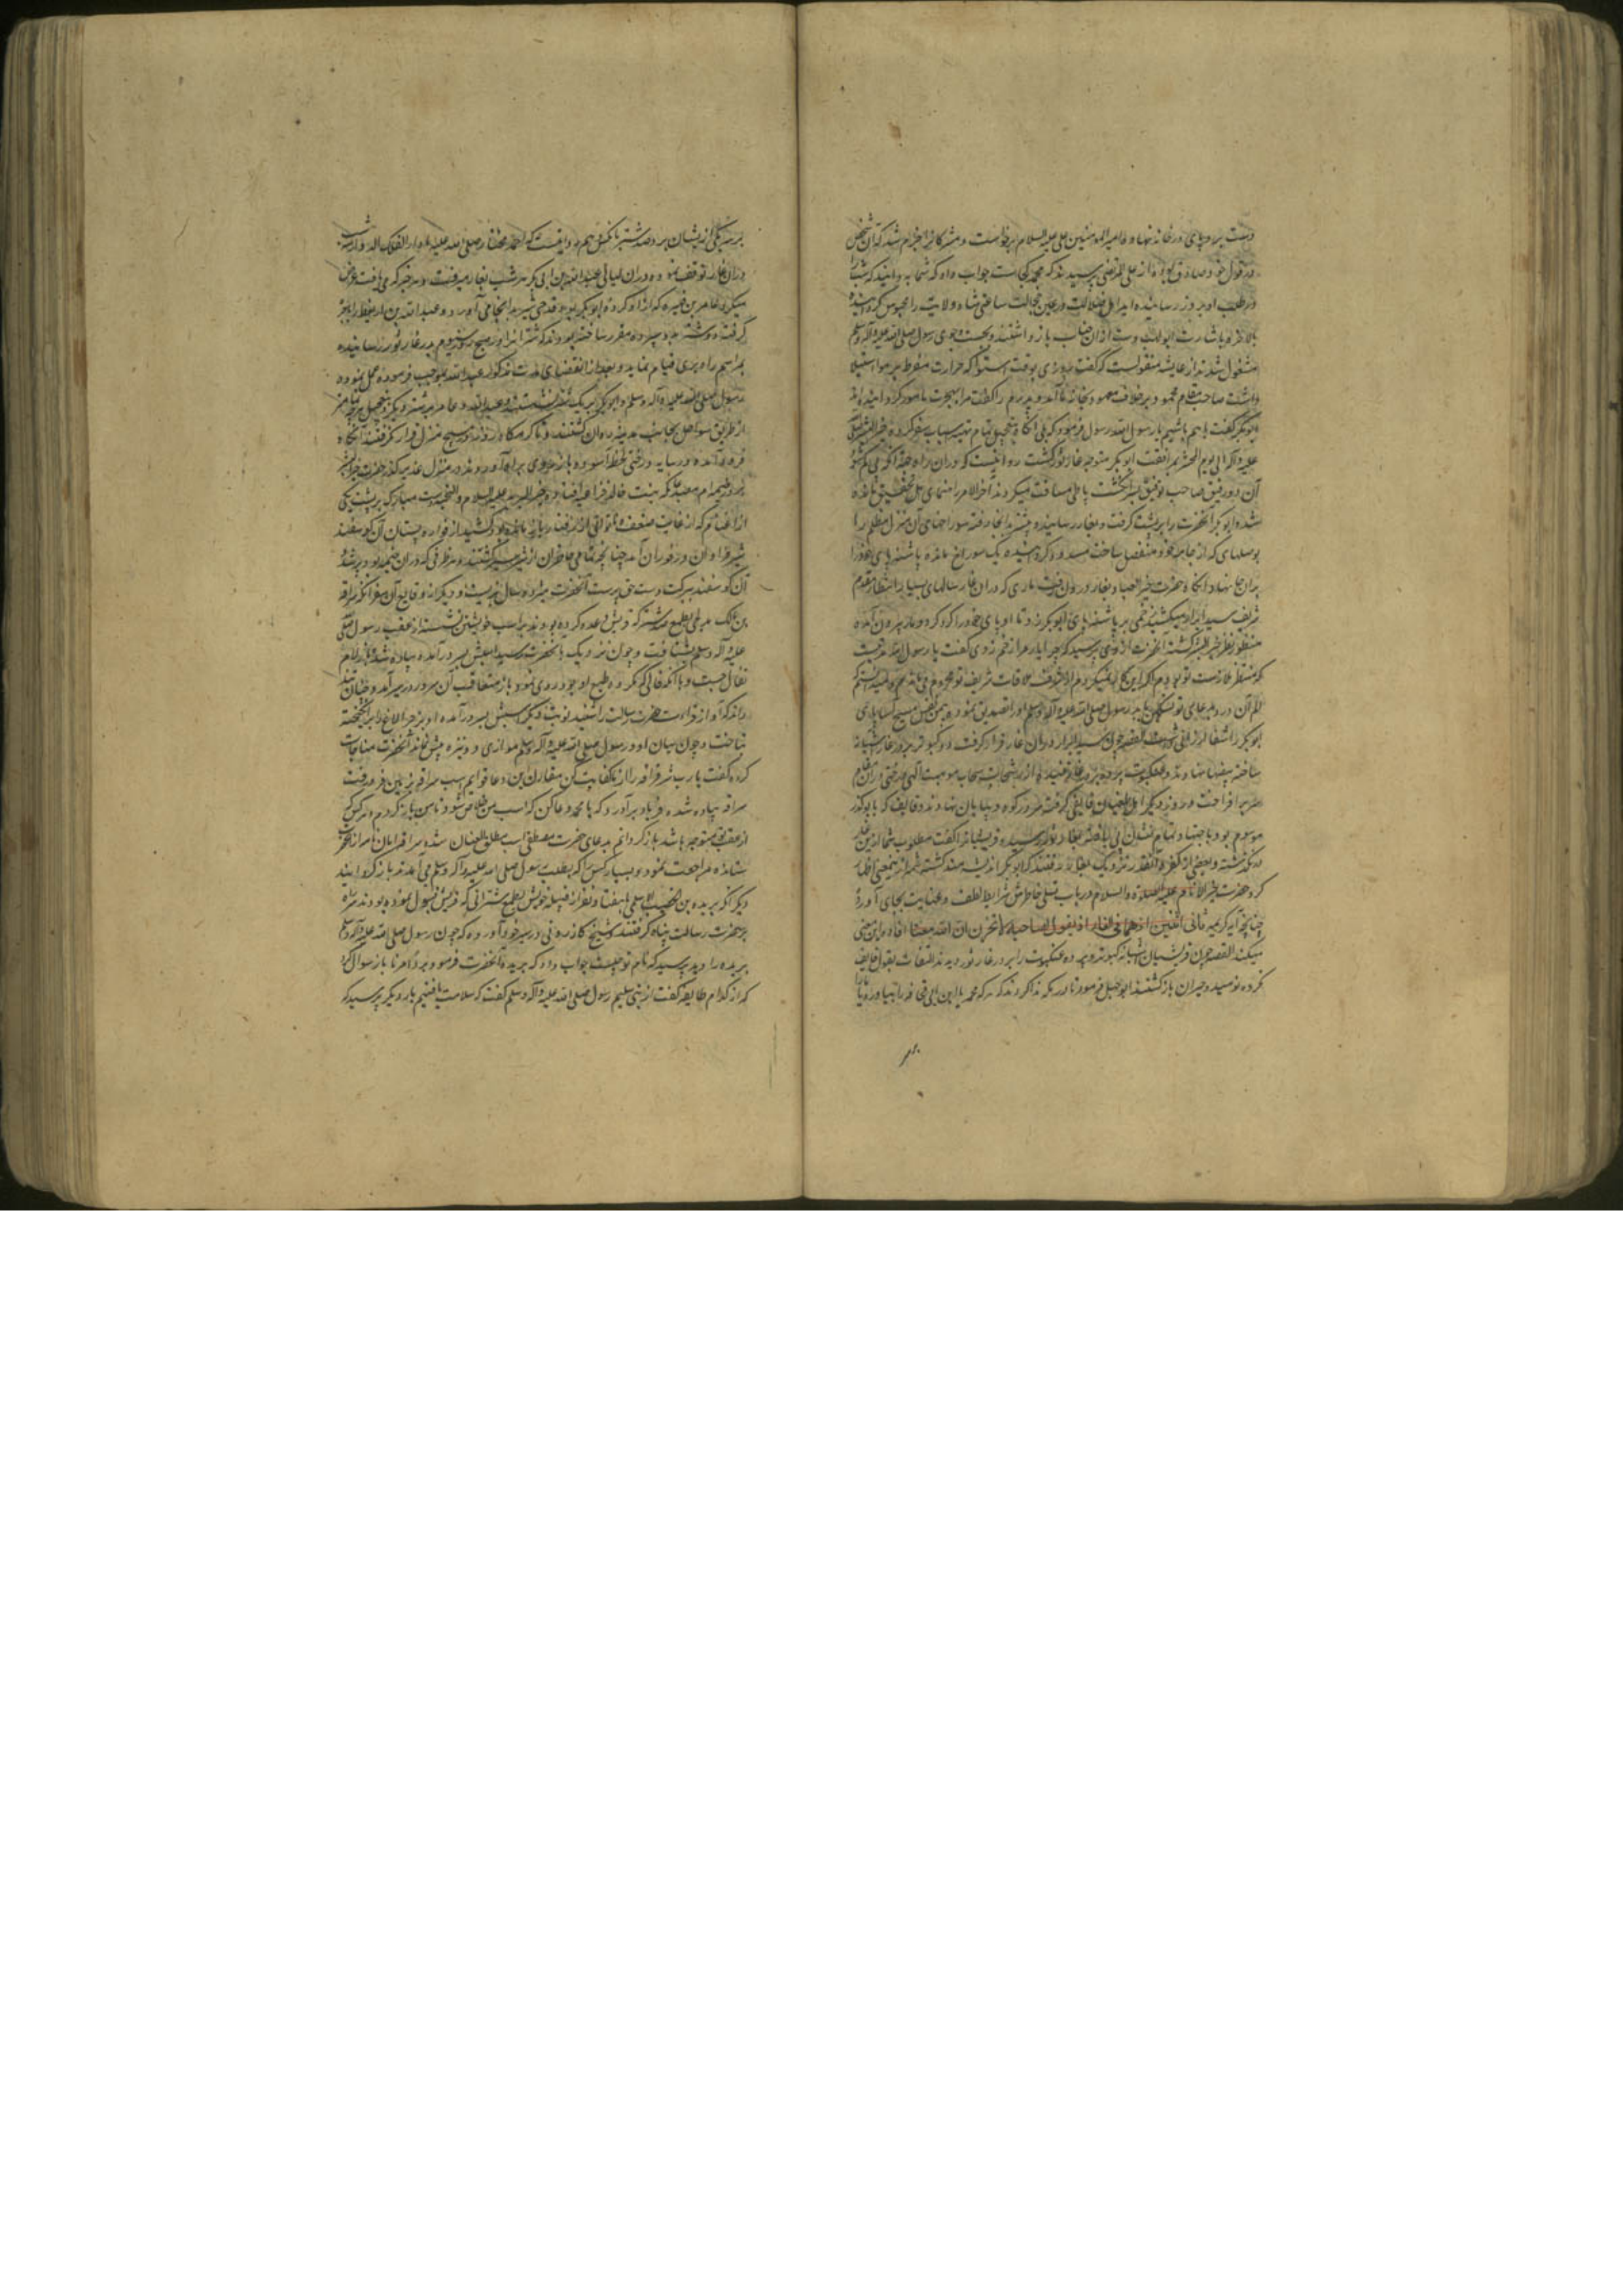 دست بر در پای در خانه نهاد و امیر المومنین علی علیه السلام برخاست و مشرکانرا جزم شد که آن شخص
در قول خود صادق بوده از علی المرتضی پرسیدند که محمد کجاست جواب داد که شما به دانید که شب
در طلب او بروز رسانیده اید اهل ضلالت و رعین جهالت ساعتی شاه ولایت را محبوس کردانیده
بالاخره باشارت ابو لهب دست از آن جناب باز داشتند و بجست و جوی رسول صلی الله علیه وآله وسلم
مشغول شدند از عایشه منقولست که گفت روزی بوقت استوا که حرارت مفرط بر هوا استیلا
داشت صاحب مقام محمود بر خلاف معهود بخانه ما آمد و پدرم را گفت مرا بهجرت مامور گردانیده اند
ابوبکر گفت با هم باشیم یا رسول الله رسول فرمود که بلی آنگاه بتعجیل تمام تهیه اسباب سفر کرده خیر البشر صلی
علیه وآله الی یوم المحشر بمرافقت ابو بکر متوجه غار ثور گشت روایتست که در آن راه
آن دو رفیق صاحب توفیق بسر انگشت پا طی مسافت میکردند آخر الامر
شده ابو بکر آنحضرت را بر پشت گرفت و بغار رسانید و پیشتر بدانجا رفته سوراخهای آن منزل مظلم را
بوصلهای که از جامه خود منفصل ساخت مسدود گردانیده یک سوراخ مانده پاشنه پای خود را
بر آنجا نهاد آنگاه حضرت خیر العباد بغار درون رفت ماری که در آن غار سالهای بسیار انتظار مقدم
شریف سید ابرار میکشید زخمی بر پاشنه پای ابوبکر زد تا او پای خود را گرد کرد و مار بیرون آمده
منظور نظر خیر البشر گشته آنحضرت از وی پرسید که چرا یار مرا زخم زدی گفت یا رسول الله مدتیست
که منتظر ملازمت تو بودم اگر این گار نمیکردم از شرف ملاقات شریف تو محروم می ماندم
الم آن درد بدعای تو تسکین یابد رسول صلی الله علیه وآله وسلم او را تصدیق نمود و بیمن نفس مسیح آسا پای
ابوبکر را شفا ارزانی داشت القصه چون سید ابرار در آن غار قرار گرفت دو کبوتر بر در غار آشیانه
ساخته بیضها نهادند و عنکبوت پرده بر در غار تنید و از رشحات سحاب موهبت الهی درختی در آن مقام
سر بر افراخت و روز دیگر اهل طغیان قایفی گرفته سر در کوه و بیابان نهادند و قایف که بابو کرز
موسوم بود باجتهاد تمام نشان پی یافته بغار ثور رسیده قریشیانرا گفت مطلوب شما ازین غار
در نگذشته و بعضی از کفره آنقدر نزدیک بغار رفتند که ابوبکر اندیشه مند گشته شمه ازینمعنی اظهار
کرد حضرت خیر الانام علیه الصلوة والسلام در باب تسلی خاطرش شرایط لطف و عنایت بجای آورد
چنانچه آیه کریمه ثانی اثنین اذ هما فی الغار اذ یقول لصاحبه لا تحزن ان الله معنا افاده این معنی
میکند القصه چون قریشیان آشیانه کبوتر و پرده عنکبوت را بر در غار ثور دیدند التفات بقول قایف
نکرده نومید و حیران باز گشتند ابو جهل فرمود تا در مکه ندا کردند که هر که محمد یا ابن ابی قحافه را بیاورد یا
بر
بر سر یکی از ایشان برد صد شتر بآنکس دهم روایتست که احمد مختار صلی الله علیه مادار الفلک الدوار سه شب
در آن غار توقف نمود و در آن لیالی عبدالله بن ابی بکر هر شب بغار میرفت و هر خبر که می یافت عرض
میکرد و عامر بن فهیره که آزاد کرده ابو بکر بود قدحی شیر بدانجا می آورد و عبدالله بن اریقط را باجرت
گرفته دو شتر بدو سپرده مقرر ساخته بودند که شترانرا در صبح روز سیوم بدر غار ثور رسانیده
بمراسم راهبری قیام نماید و بعد از انقضای مدت مذکور عبدالله بموجب فرموده عمل نموده
رسول صلی الله علیه وآله وسلم و ابوبکر بر یک شتر نشستند و عبدالله و عامر بر شتر دیگر و بتعجیل هر چه تمامتر
از طریق سواحل بجانب مدینه روان گشتند و تا گرمگاه روز در هیچ منزل قرار نگرفتند آنگاه
فرود آمده در سایه درختی لحظه آسوده باز روی براه آوردند و در منزل قدید گذر حضرت خیر البشر
بر در خیمه ام معبد عاتکه بنت خالد خزاعیه افتاد و خیر البریه علیه السلام والتحیه دست مبارک بر پشت یکی
از اغنام که از غایت ضعف و ناتوانی از رفتن باز مانده بود کشید از فواره پستان آن گوسفند
شیر فراوان در فوران آمد چنانچه تمامی حاضران از شیر سیر گشتند و هر ظرفی که در آن خیمه بود پر شد
آن گوسفند ببرکت دست حق پرست آنحضرت هیژده سال بزیست و دیگر از وقایع آن سفر آنکه سراقه
بن مالک مدلجی بطمع صد شتر که قریش وعده کرده بودند بر اسب خویشتن نشسته از عقب رسول صلی
علیه وآله وسلم بشتافت و چون نزدیک بآنحضرت رسید اسبش بسر در آمده پیاده شد و بازلام
تفال جست و با آنکه فالی مکروه طبع او بود روی نمود باز متعاقب آن سرور در سیر آمد و چنان نزدیک
راند که آواز قراءت حضرت رسالت را شنید نوبت دیگر اسبش بسر در آمده او بزجر الاغ را برانگیخته
بتاخت و چون میان او و رسول صلی الله علیه وآله وسلم موازی دو نیزه بیش نماند آنحضرت مناجات
کرده گفت یا رب شر سراقه را از ما کفایت کن مقارن این دعا قوایم اسب سراقه بزمین فرو رفت
سراقه پیاده شده فریاد بر آورد که یا محمد دعا کن که اسب من خلاص شود تا من باز گردم و هر کس که
از عقب تو متوجه باشد باز گردانم بدعای حضرت مصطفی اسب مطلق العنان شده سراقه امان نامه از آنحضرت
ستانده مراجعت نمود و بسیار کس را که بطلب رسول صلی الله علیه وآله وسلم می آمدند باز گردانید
دیگر آنکه بریده بن الخصیب اسلمی با هفتاد نفر از قبیله خویش بطمع شترانی که قریش قبول نموده بودند سر راه
بر حضرت رسالت پناه گرفتند و شیخ کازرونی در سیر خود آورده که چون رسول صلی الله علیه وآله وسلم
بریده را دید پرسید که نام تو چیست جواب داد که بریده آنحضرت فرمود برد امرنا باز سوال کرد
که از کدام طایفه گفت از بنی سلیم رسول صلی الله علیه وآله وسلم گفت که سلامت یافتیم بار دیگر پرسید که